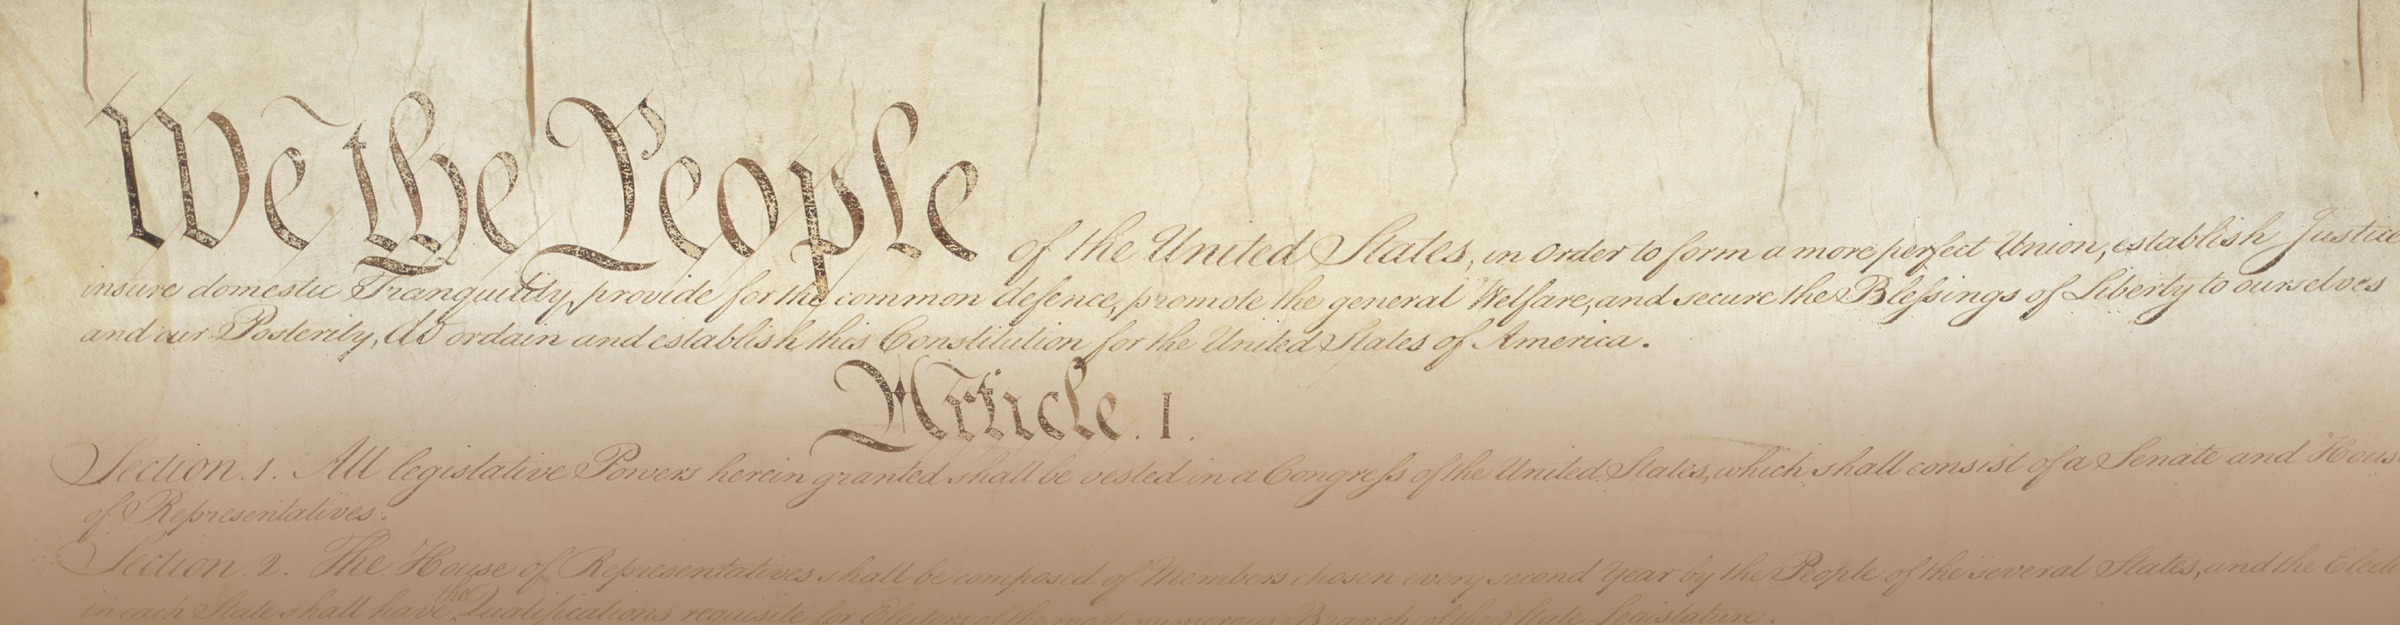 We the People of the United States, in Order to form a more perfect Union, establish Justice
insure domestic Tranquility, provide for the common defence, promote the general Welfare, and secure the Blessings of Liberty to ourselves
and our Posterity, do ordain and establish this Constitution for the United States of America.
Article. I.
Section. 1. All legislative Powers herein granted shall be vested in a Congress of the United States, which shall consist of a Senate and Hous
of Representatives.
Section. 2. The House of Representatives shall be composed of Members chosen every second Year by the People of the several States, and the Elect
in each State shall have the Qualifications requisite for Electors of the most numerous Branch of the State Legislature.